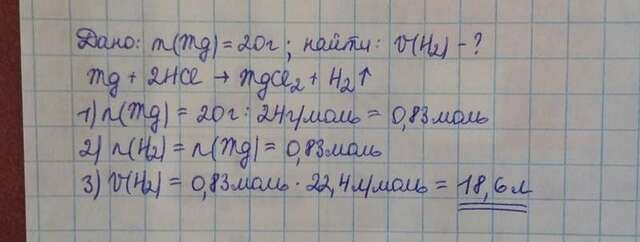 Дано: m(Mg) = 20г ; найти: V(H₂) - ?
Mg + 2HCl → MgCl₂ + H₂↑
1) n(Mg) = 20г : 24г/моль = 0,83моль
2) n(H₂) = n(Mg) = 0,83моль
3) V(H₂) = 0,83моль · 22,4л/моль = 18,6л